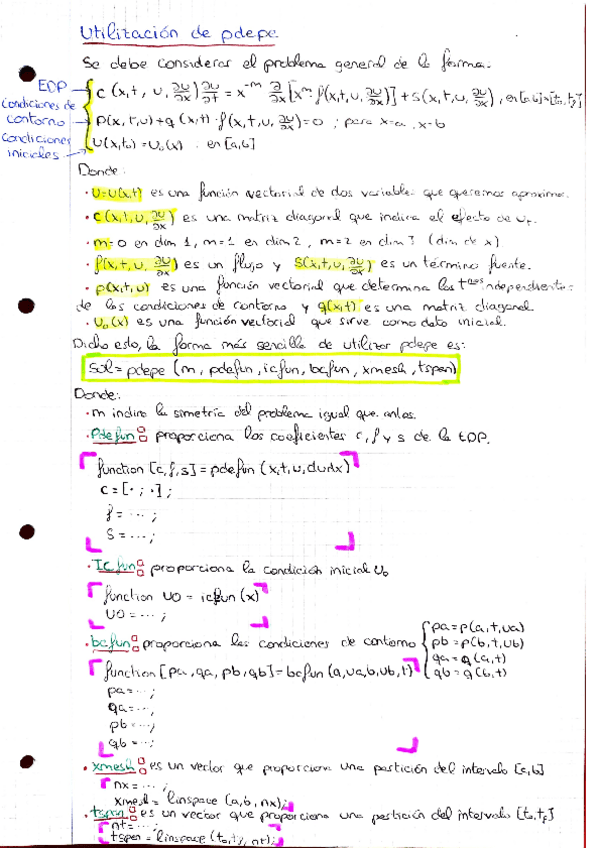 Utilización de pdepe.
Se debe considerar el problema general de la forma:
EDP
c(x,t,u,∂u/∂x) ∂u/∂t = x^-m ∂/∂x [x^m · f(x,t,u,∂u/∂x)] + s(x,t,u,∂u/∂x), en [a,b]x[t₀,t_f]
Condiciones de contorno
p(x,t,u)+q(x,t)·f(x,t,u,∂u/∂x)=0 ; para x=a, x=b
Condiciones iniciales
u(x,t₀)=u₀(x) en [a,b]
Donde:
· u=u(x,t) es una función vectorial de dos variables que queremos aproximar.
· c(x,t,u,∂u/∂x) es una matriz diagonal que indica el efecto de u_t.
· m=0 en dim 1, m=1 en dim 2, m=2 en dim 3 (dim de x)
· f(x,t,u,∂u/∂x) es un flujo y s(x,t,u,∂u/∂x) es un término fuente.
· p(x,t,u) es una función vectorial que determina los t^nos independientes
de las condiciones de contorno y q(x,t) es una matriz diagonal
· u₀(x) es una función vectorial que sirve como dato inicial.
Dicho esto, la forma más sencilla de utilizar pdepe es:
sol=pdepe(m, pdefun, icfun, bcfun, xmesh, tspan)
Donde:
· m indica la simetría del problema igual que antes.
· Pdefun: proporciona los coeficientes c, f y s de la EDP.
function [c,f,s]=pdefun(x,t,u,dudx)
c=[·;·];
f=...;
s=...;
· Icfun: proporciona la condición inicial u₀
function u0=icfun(x)
u0=...;
· bcfun: proporciona las condiciones de contorno
pa=p(a,t,ua)
pb=p(b,t,ub)
qa=q(a,t)
qb=q(b,t)
function [pa,qa,pb,qb]=bcfun(a,ua,b,ub,t)
pa=...;
qa=...;
pb=...;
qb=...;
· xmesh: es un vector que proporciona una partición del intervalo [a,b]
nx=...;
xmesh=linspace(a,b,nx);
· tspan: es un vector que proporciona una partición del intervalo [t₀,t_f]
nt=...;
tspan=linspace(t₀,t_f,nt);